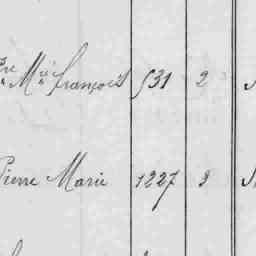 Mie françois 531 2
Pierre Marie 1227 9